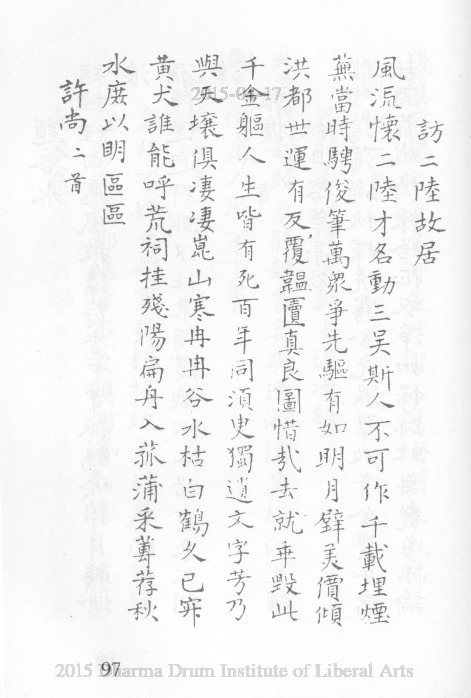 訪二陸故居
風流懷二陸才名動三吳斯人不可作千載埋煙
蕪當時騁俊筆萬衆爭先驅有如明月璧美價傾
洪都世運有反覆韞匵真良圖惜哉去就乖毀此
千金軀人生皆有死百年同須臾獨遺文字芳乃
與天壤俱凄凄崑山寒冉冉谷水枯白鶴久已寂
黃犬誰能呼荒祠挂殘陽扁舟入菰蒲采蓴荐秋
水庻以明區區
許尚二首
2015-03-17
97
2015 Dharma Drum Institute of Liberal Arts